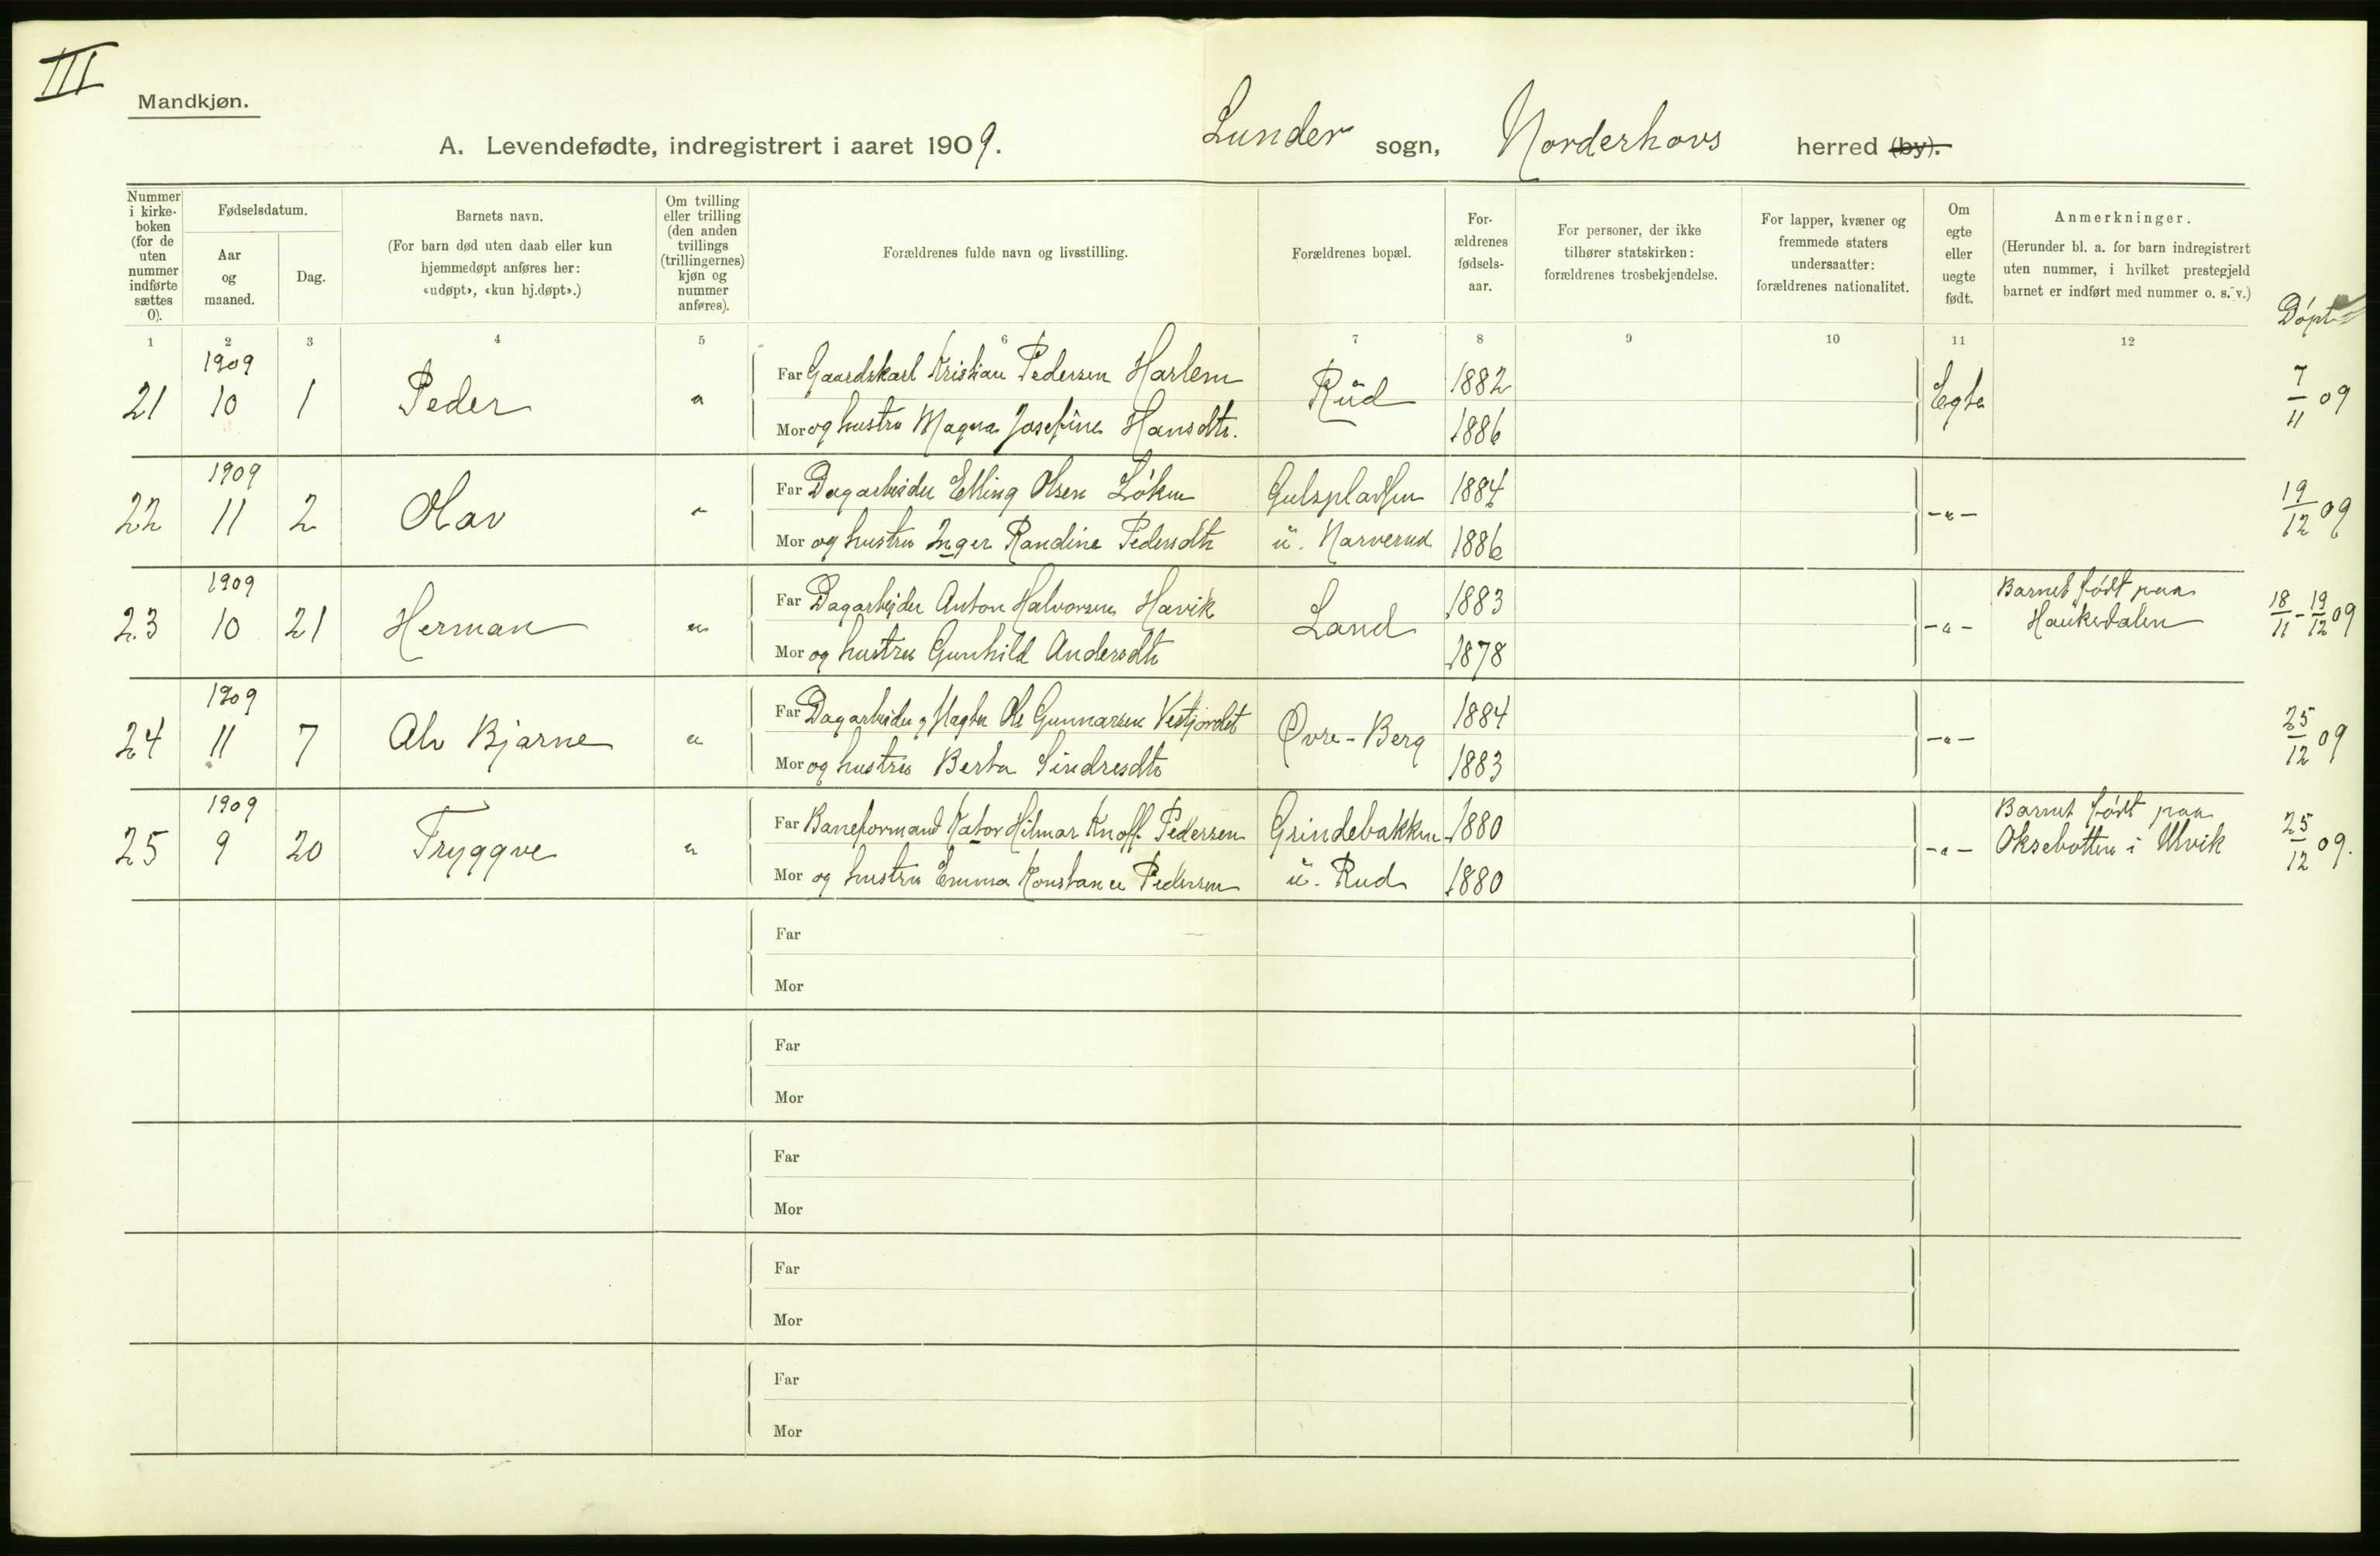 III
Mandkjøn.
A. Levendefødte, indregistrert i aaret 1909. Lunder sogn, Norderhovs herred (by).
Nummer i kirke-boken (for de uten nummer indførte sættes 0).
Fødselsdatum.
Aar og maaned.
Dag.
Barnets navn.
(For barn død uten daab eller kun hjemmedøpt anføres her: «udøpt», «kun hj.døpt».)
Om tvilling eller trilling (den anden tvillings (trillingernes) kjøn og nummer anføres).
Forældrenes fulde navn og livsstilling.
Forældrenes bopæl.
For-ældrenes fødsels-aar.
For personer, der ikke tilhører statskirken: forældrenes trosbekjendelse.
For lapper, kvæner og fremmede staters undersaatter: forældrenes nationalitet.
Om egte eller uegte født.
Anmerkninger.
(Herunder bl. a. for barn indregistrert uten nummer, i hvilket prestegjeld barnet er indført med nummer o. s. v.)
Døpt
1 2 3 4 5 6 7 8 9 10 11 12
1909
21 10 1 Peder " Far Gaardskarl Kristian Pedersen Harlem Rud 1882 Egte 7/11 09
Mor og hustru Magna Josefine Hansdtr. 1886
1909
22 11 2 Olav " Far Dagarbeider Elling Olsen Løken Gulspladsen 1884 -"- 19/12 09
Mor og hustru Inger Randine Pedersdtr u. Narverud 1886
1909
23 10 21 Herman " Far Dagarbejder Anton Halvorsen Havik Land 1883 -"- Barnet født paa Haukedalen 18/11 - 19/12 09
Mor og hustru Gunhild Andersdtr 1878
1909
24 11 7 Alv Bjarne " Far Dagarbeider Ole Gunnarsen Vestjordet Øvre-Berg 1884 -"- 25/12 09
Mor og hustru Berta Sindresdtr 1883
1909
25 9 20 Tryggve " Far Baneformand Kator Hilmar Knoff Pedersen Grindebakken 1880 -"- Barnet født paa Oksebotten i Ulvik 25/12 09.
Mor og hustru Emma Konstance Pedersen u. Rud 1880
Far
Mor
Far
Mor
Far
Mor
Far
Mor
Far
Mor